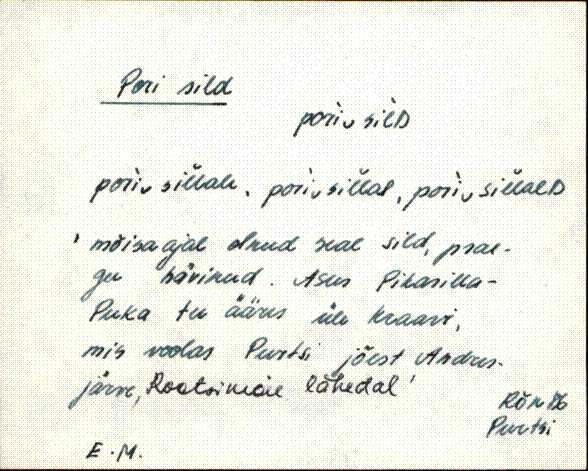 Pori sild
pori‿silD
pori‿sillale, pori‿sillal, pori‿sillalD
'mõisa ajal olnud seal sild, prae-
gu hävinud. Asus Pikasilla-
Puka tee ääres üle kraavi,
mis voolas Purtsi jõest Andres-
järve, Rootsimäe lähedal'
Rõn
Purtsi
E.M.